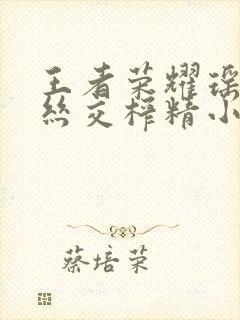 王者荣耀瑶
丝交榨精小
蔡培荣